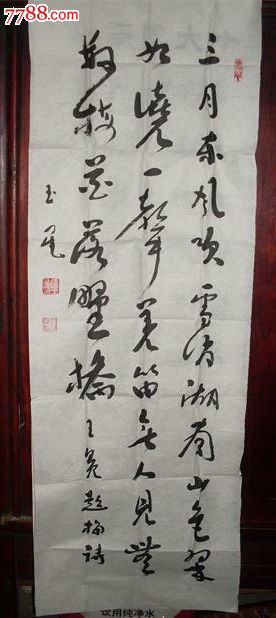 7788.com
三月东风吹雪消湖南山色翠
如浇一声羌笛无人见无
数梅花落野桥王冕题梅诗
玉昆
饮用纯净水